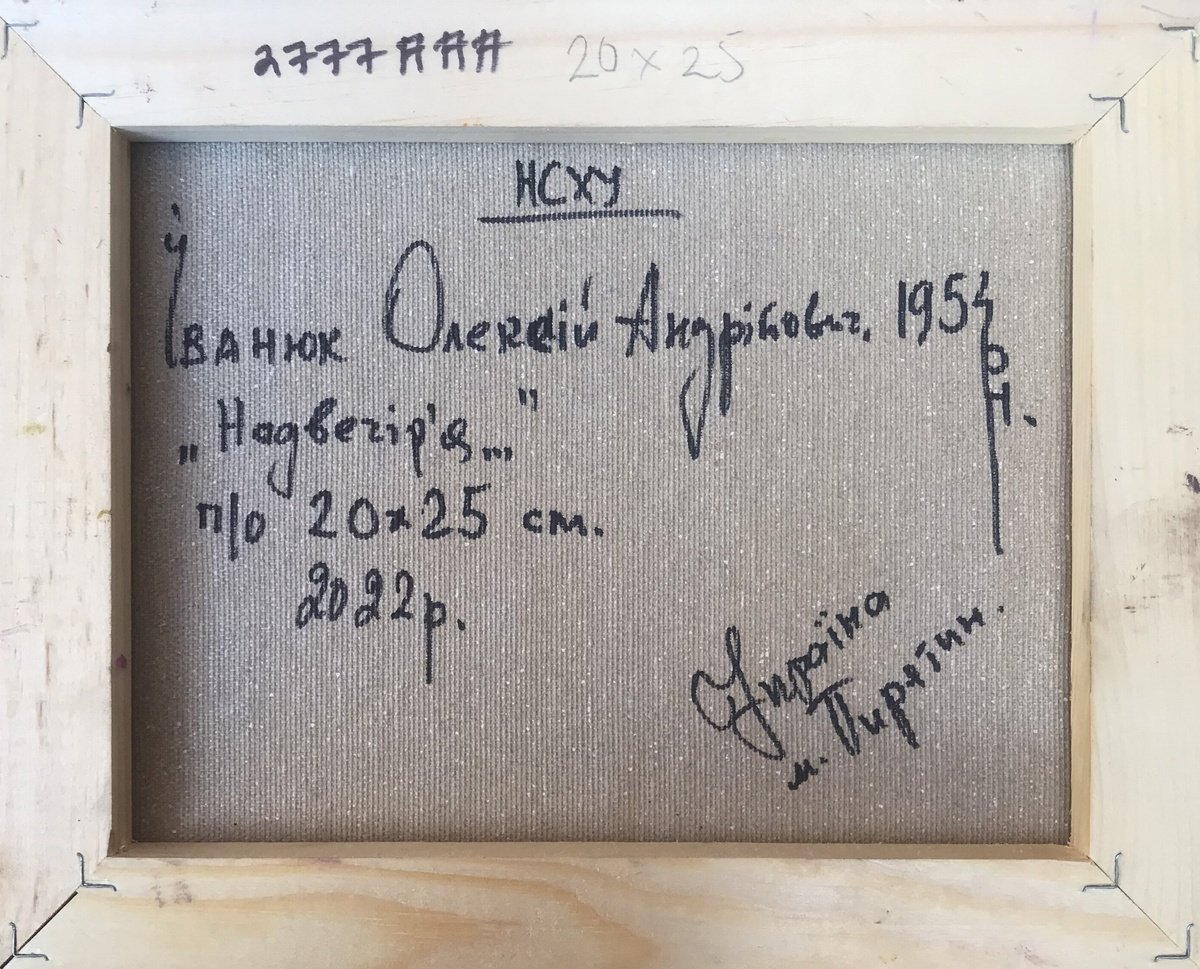 2777ААА 20х25
НСХУ
Іванюк Олексій Андрійович. 1954 р.н.
„Надвечір'я..."
п/о 20х25 см.
2022р.
Україна
м. Пирятин.